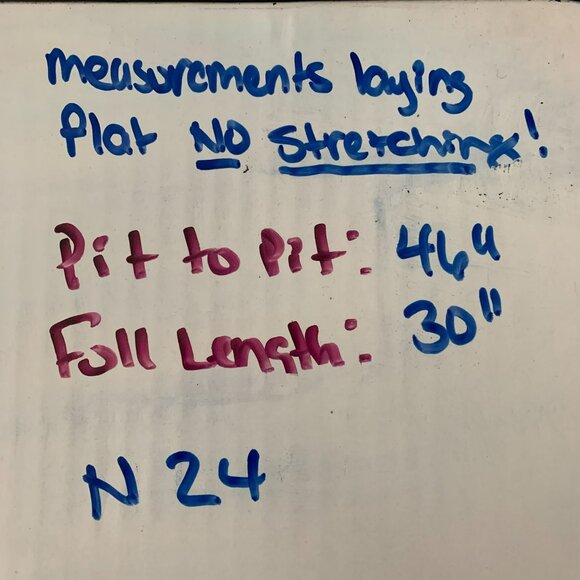 measurements laying
flat NO stretching!
Pit to Pit: 46"
Full Length: 30"
N 24